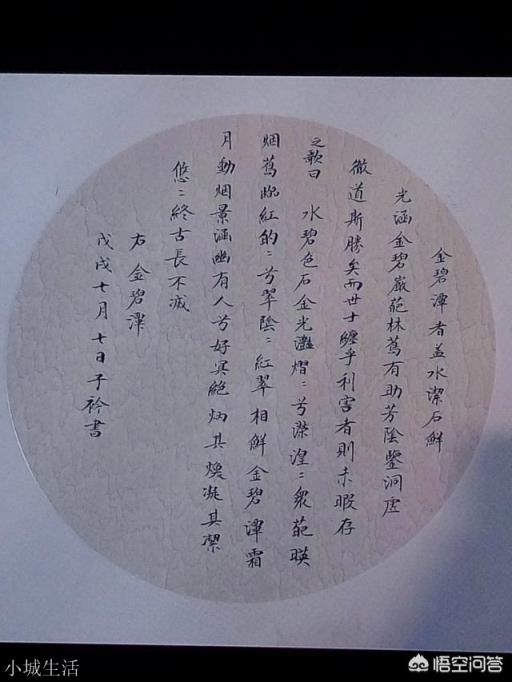 金碧潭者盖水潔石鮮
光涵金碧巌葩林蔦有助芳陰鑒洞虛
徹道斯勝矣而世士纏乎利害者則未暇存
之歌曰 水碧色石金光灧熠〻兮濚湟〻衆葩暎
烟蔦臨紅的〻兮翠陰〻紅翠相鮮金碧潭霜
月動烟景涵幽有人兮好冥絶炳其煥凝其潔
悠〻終古長不滅
右金碧潭
戊戌七月七日子衿書
小城生活
悟空问答